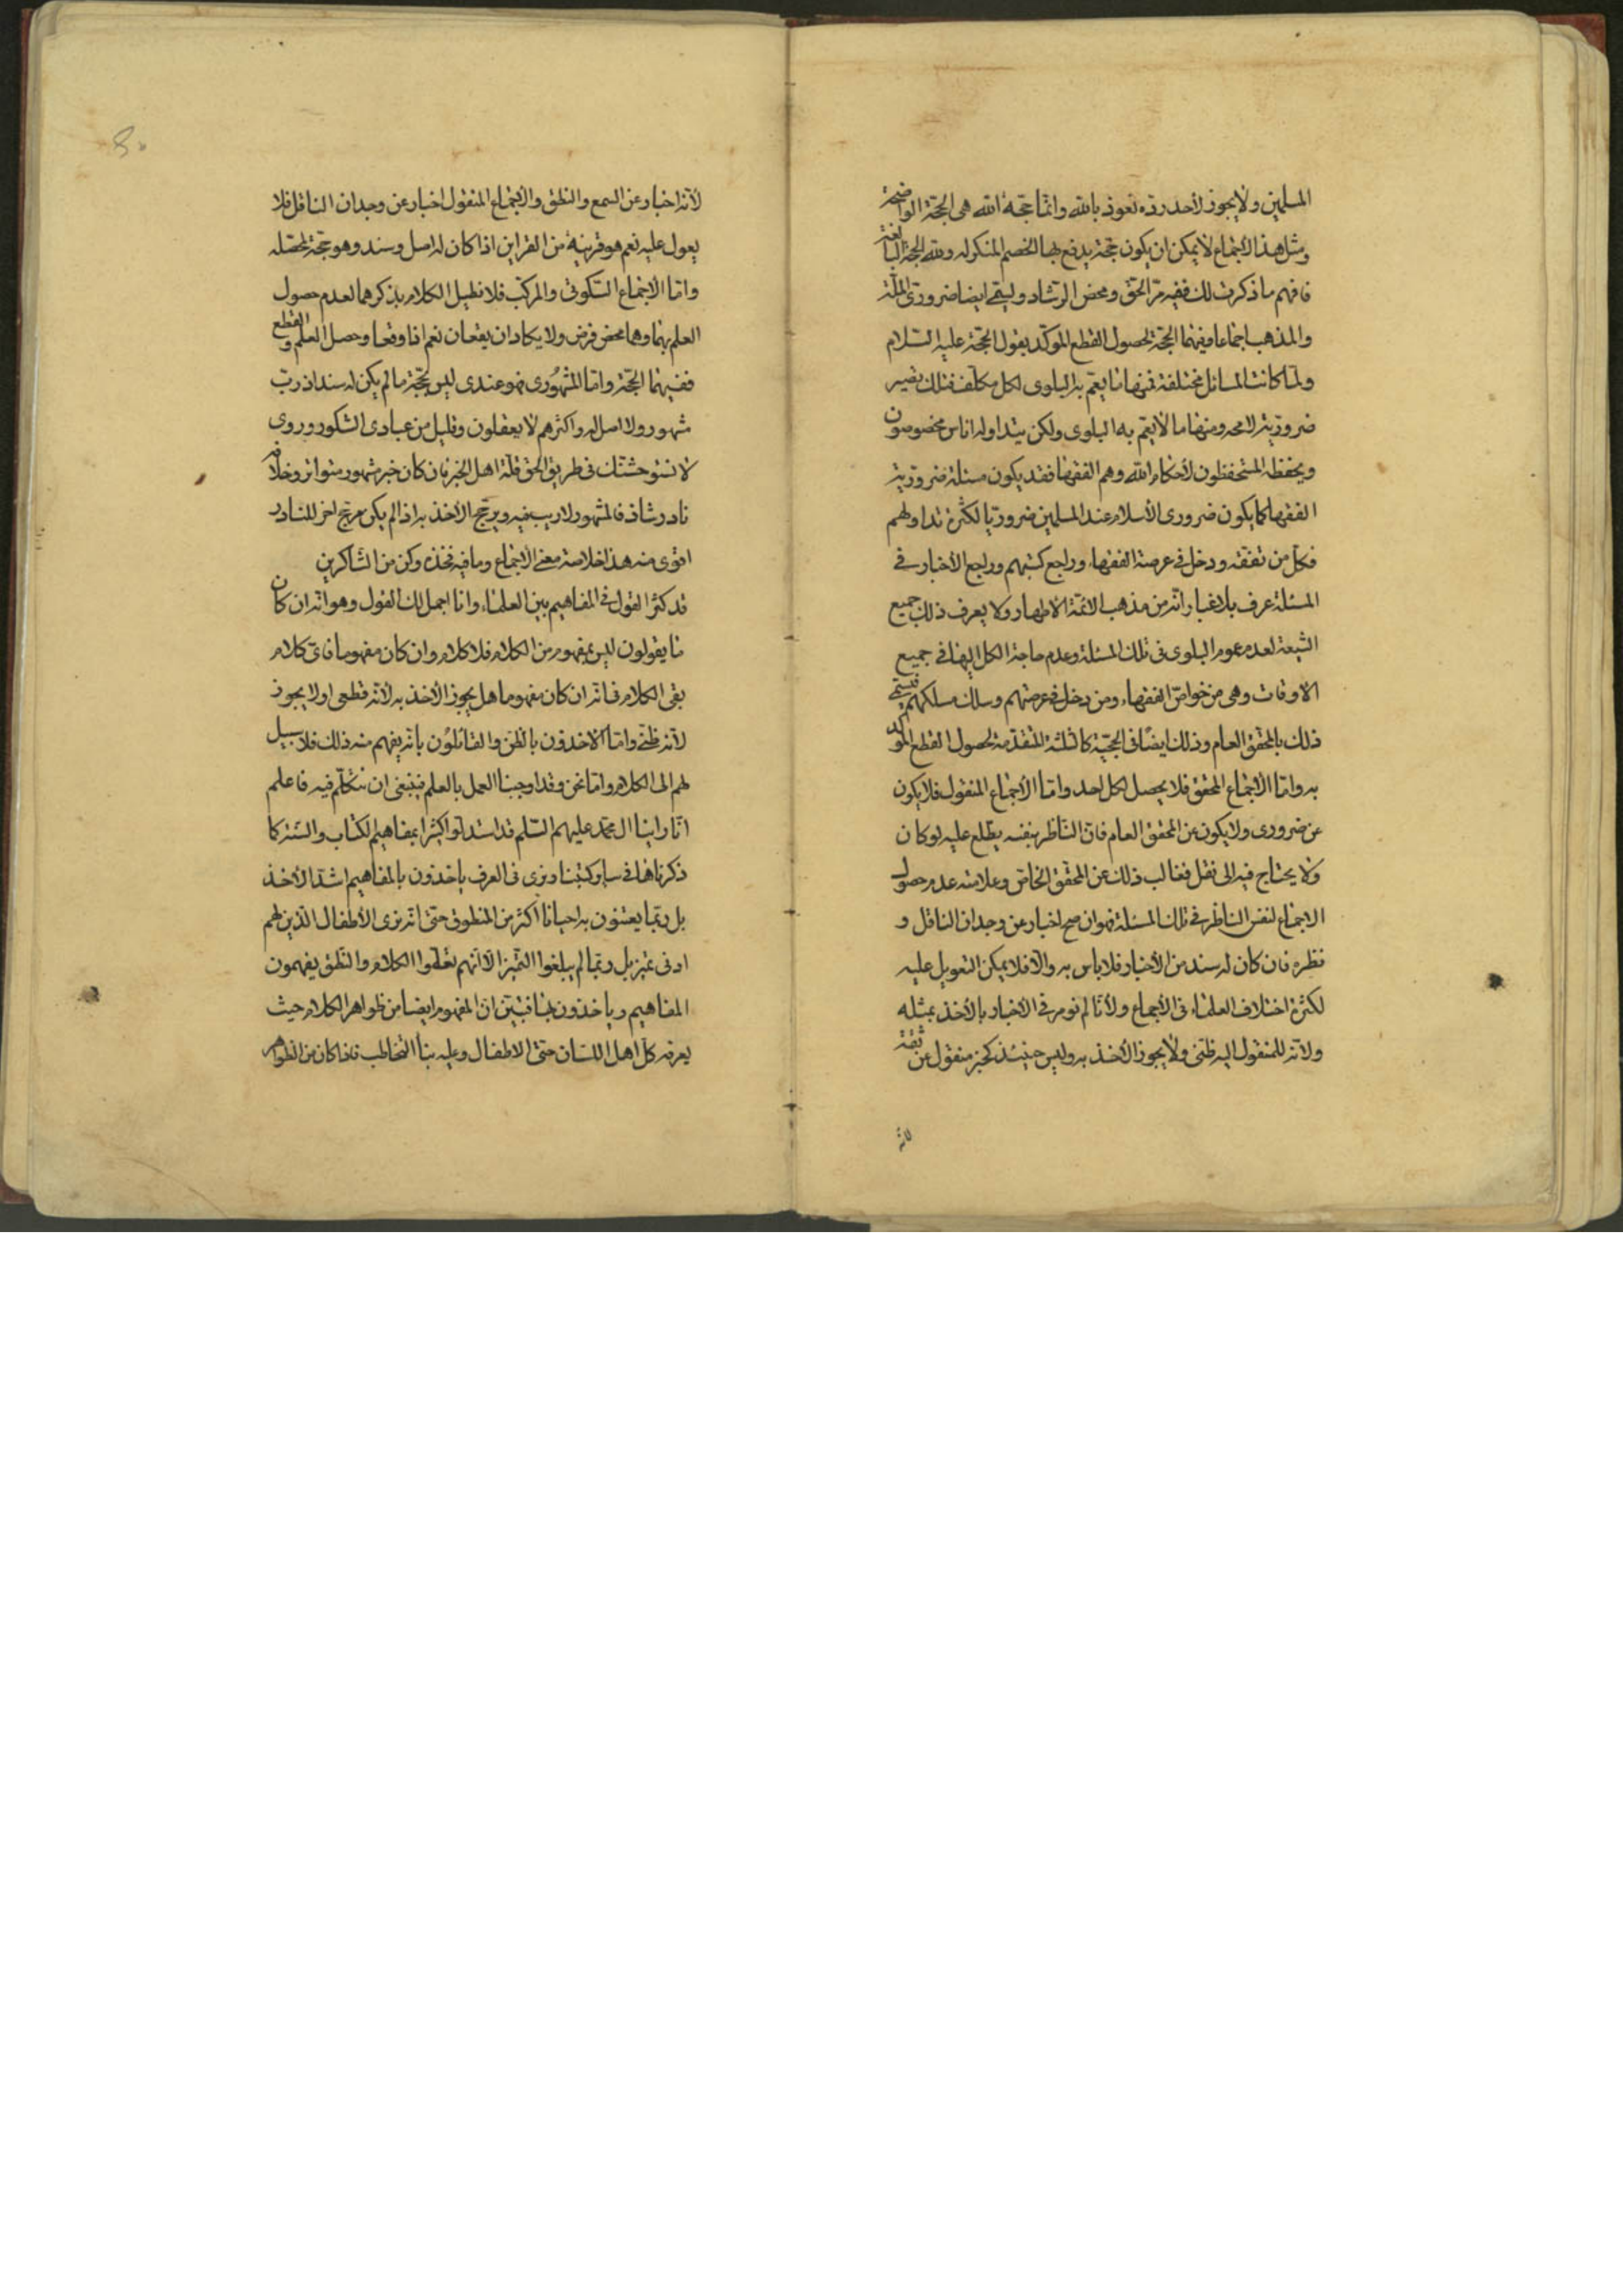 المسلمين ولا يجوز لاحد رده نعوذ بالله وانما حجة الله هى الحجة الواضحة
ومثل هذا الاجماع لا يمكن ان يكون حجة يدفع بها الخصم المنكر له ولله الحجة البالغة
فافهم ما ذكرت لك ففيه مرّ الحق ومحض الرشاد ويسمى ايضا ضرورى الملة
والمذهب اجماعا وفيهما الحجة لحصول القطع المؤكد بقول الحجة عليه السلام
ولما كانت المسائل مختلفة فمنها ما يعم به البلوى لكل مكلف فتلك تصير
ضرورية لا محه ومنها ما لا يعم به البلوى ولكن يتداوله اناس مخصوصون
ويحفظه المستحفظون لاحكام الله وهم الفقهاء فقد يكون مسئلة ضرورية
الفقهاء كما يكون ضرورى الاسلام عند المسلمين ضروريا لكثرة تداولهم
فكل من تفقه ودخل فى عرصة الفقهاء وراجع كتبهم وراجع الاخبار فى
المسئلة عرف بلا غبار انه من مذهب الائمة الاطهار ولا يعرف ذلك جميع
الشيعة لعدم عموم البلوى فى تلك المسئلة وعدم حاجة الكل اليها فى جميع
الاوقات وهى من خواص الفقهاء ومن دخل فى عرصتهم وسلك مسلكهم فيسمى
ذلك بالمحقق العام وذلك ايضًا فى الحجية كالثلثة المتقدمة لحصول القطع المؤكد
به واما الاجماع المحقق فلا يحصل لكل احد واما الاجماع المنقول فلا يكون
عن ضرورى ولا يكون عن المحقق العام فان الناظر بنفسه يطلع عليه لو كان
ولا يحتاج فيه الى نقل فغالب ذلك عن المحقق الخاص وعلامته عدم حصول
الاجماع لنفس الناظر فى تلك المسئلة فهو ان صح اخبار عن وجدان الناقل و
نظره فان كان له سند من الاخبار فلا باس به والا فلا يمكن التعويل عليه
لكثرة اختلاف العلماء فى الاجماع ولانا لم نومر فى الاخبار بالاخذ بمثله
ولانه للمنقول اليه ظنى ولا يجوز الاخذ به وليس حينئذ كخبر منقول عن ثقة
لانه
لانه اخبار عن السمع والنطق والاجماع المنقول اخبار عن وجدان الناقل فلا
يعول عليه نعم هو قرينة من القراين اذا كان له اصل وسند وهو حجة لمحصله
واما الاجماع السكوتى والمركب فلا نطيل الكلام بذكرهما لعدم حصول
العلم بهما وهما محض فرض ولا يكادان يقعان نعم اذا وقعا وحصل العلم والقطع
ففيهما الحجة واما المشهُورى فهو عندى ليس بحجة ما لم يكن له سند اذ ربّ
مشهور ولا اصل له واكثرهم لا يعقلون وقليل من عبادى الشكور وروى
لا تستوحشنك فى طريق الحق قلة اهل الخبر فان كان خبر مشهور متواتر وخلافه
نادر شاذ فالمشهور لا ريب فيه ويرجح الاخذ به اذا لم يكن مرجح اخر للنادر
اقوى منه هذا خلاصة معنى الاجماع وما فيه فخذه وكن من الشاكرين
قد كثر القول فى المفاهيم بين العلماء وانا اجمل لك القول وهو انه ان كان
ما يقولون ليس بمفهوم من الكلام فلا كلام وان كان مفهوما فاى كلام
بقى الكلام فى انه ان كان مفهوما هل يجوز الاخذ به لانه قطعى او لا يجوز
لانه ظنى واما الاخذون بالظن والقائلوُن بانه يفهم منه ذلك فلا سبيل
لهم الى الكلام واما نحن وقد اوجبنا العمل بالعلم فينبغى ان نتكلم فيه فاعلم
انا راينا ال محمد عليهم السلم قد استدلوا كثيرا بمفاهيم الكتاب والسنة كما
ذكرناها فى ساير كتبنا ونرى فى العرف ياخذون بالمفاهيم اشد الاخذ
بل ربما يعتنون به احيانا اكثر من المنطوق حتى انه نرى الاطفال الذين لهم
ادنى تميز بل ربما لم يبلغوا التميز الا انهم تعلموا الكلام والنطق يفهمون
المفاهيم وياخذون بها فتبين ان المفهوم ايضا من ظواهر الكلام حيث
يعرفه كل اهل اللسان حتى الاطفال وعليه بناء التخاطب فاذا كان من الظواهر